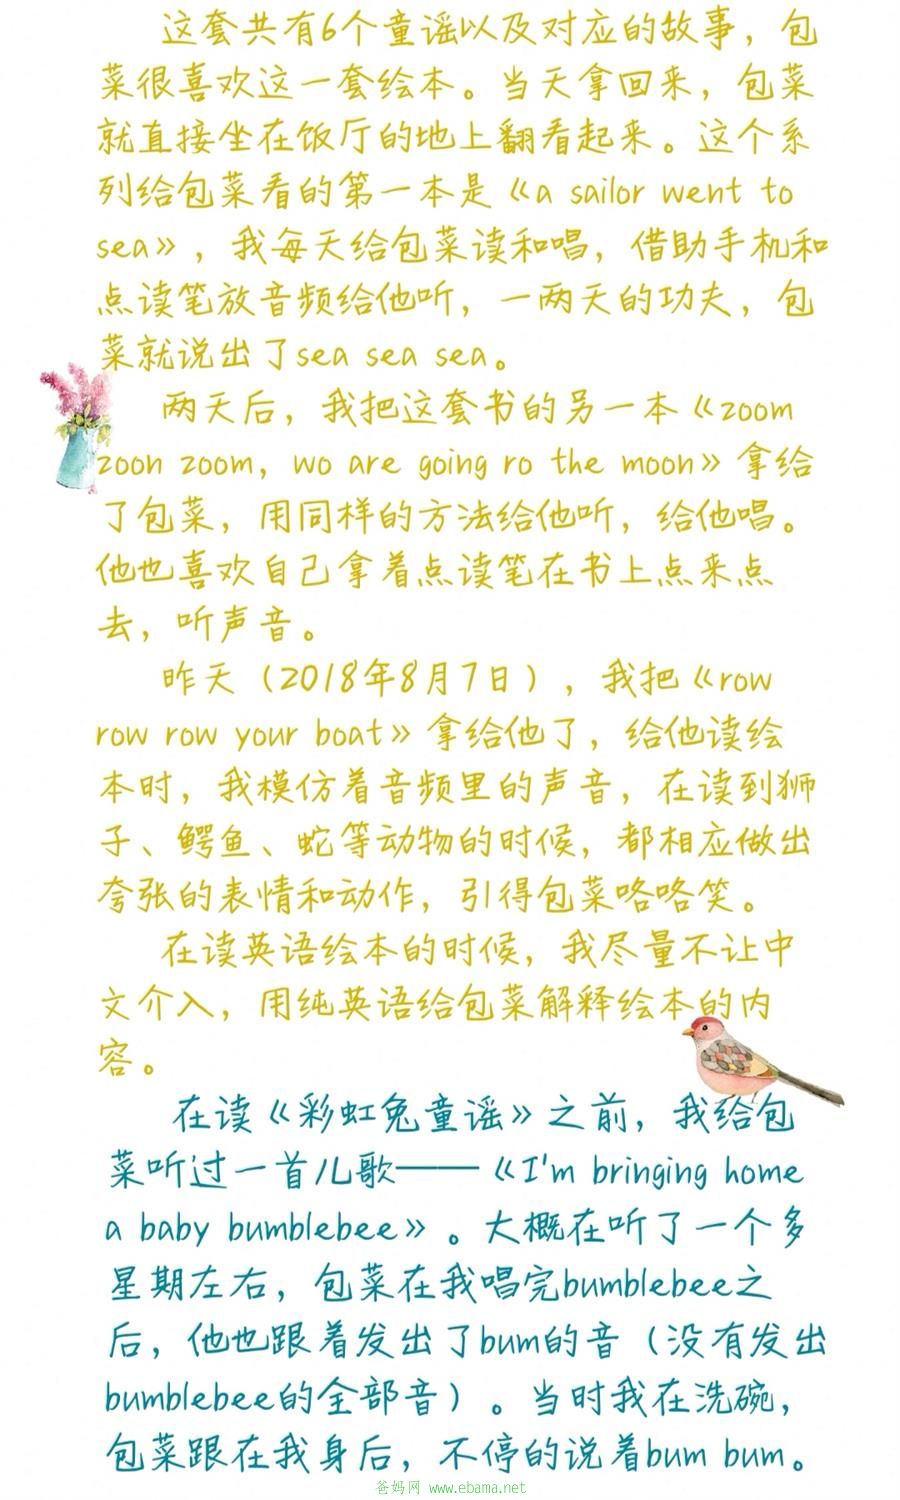 这套共有6个童谣以及对应的故事，包
菜很喜欢这一套绘本。当天拿回来，包菜
就直接坐在饭厅的地上翻看起来。这个系
列给包菜看的第一本是《a sailor went to
sea》，我每天给包菜读和唱，借助手机和
点读笔放音频给他听，一两天的功夫，包
菜就说出了sea sea sea。
两天后，我把这套书的另一本《zoom
zoon zoom，wo are going ro the moon》拿给
了包菜，用同样的方法给他听，给他唱。
他也喜欢自己拿着点读笔在书上点来点
去，听声音。
昨天（2018年8月7日），我把《row
row row your boat》拿给他了，给他读绘
本时，我模仿着音频里的声音，在读到狮
子、鳄鱼、蛇等动物的时候，都相应做出
夸张的表情和动作，引得包菜咯咯笑。
在读英语绘本的时候，我尽量不让中
文介入，用纯英语给包菜解释绘本的内
容。
在读《彩虹兔童谣》之前，我给包
菜听过一首儿歌——《I'm bringing home
a baby bumblebee》。大概在听了一个多
星期左右，包菜在我唱完bumblebee之
后，他也跟着发出了bum的音（没有发出
bumblebee的全部音）。当时我在洗碗，
包菜跟在我身后，不停的说着bum bum。
爸妈网 www.ebama.net